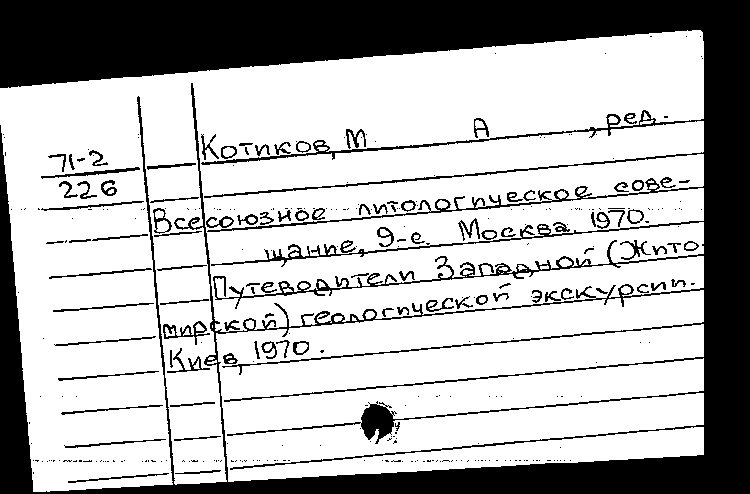 Котиков, М А , ред.
71-2
226
Всесоюзное литологическое сове-
щание, 9-е. Москва. 1970.
Путеводители Западной (Жито-
мирской) геологической экскурсии.
Киев, 1970.